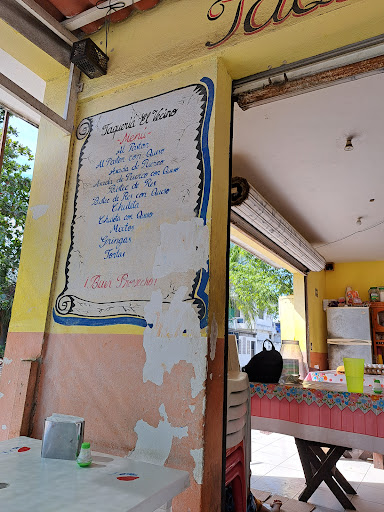 Ta
Taquería "El Vecino"
~Menú~
Al Pastor
Al Pastor con Queso
Asada de Puerco
Asada de Puerco con Queso
Bistec de Res
Bistec de Res con Queso
Chuleta
Chuleta con Queso
Mixtos
Gringas
Tortas
¡Buen Provecho!